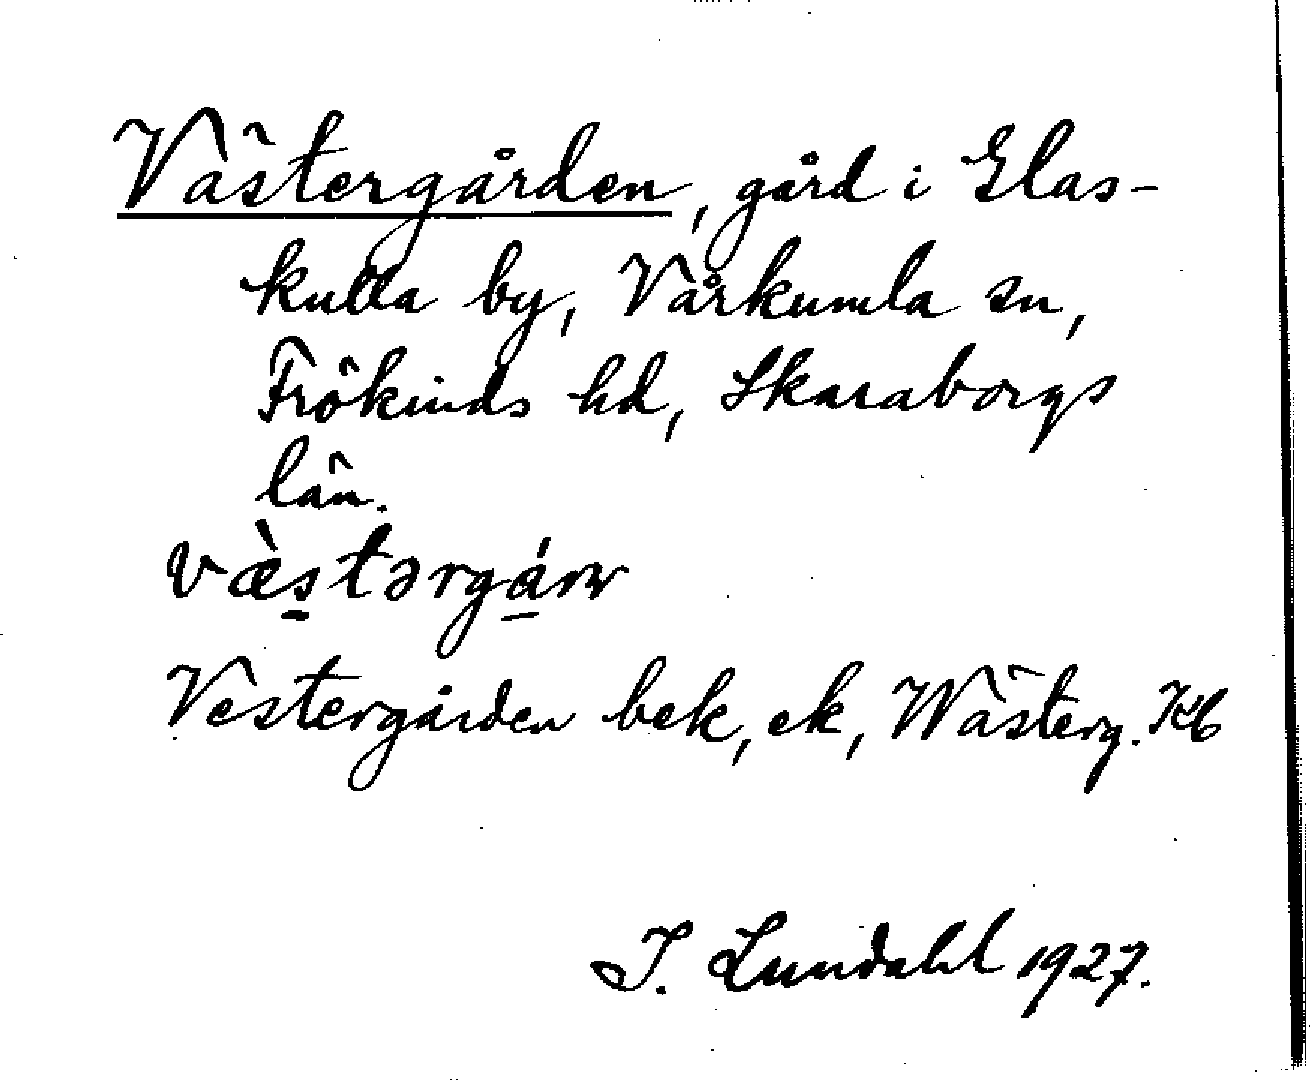 Västergården, gård i Elas-
kulla by, Vårkumla sn,
Frökinds hd, Skaraborgs
län.
Vestergården bek, ek, Wästerg. Kb
I. Lundahl 1927.